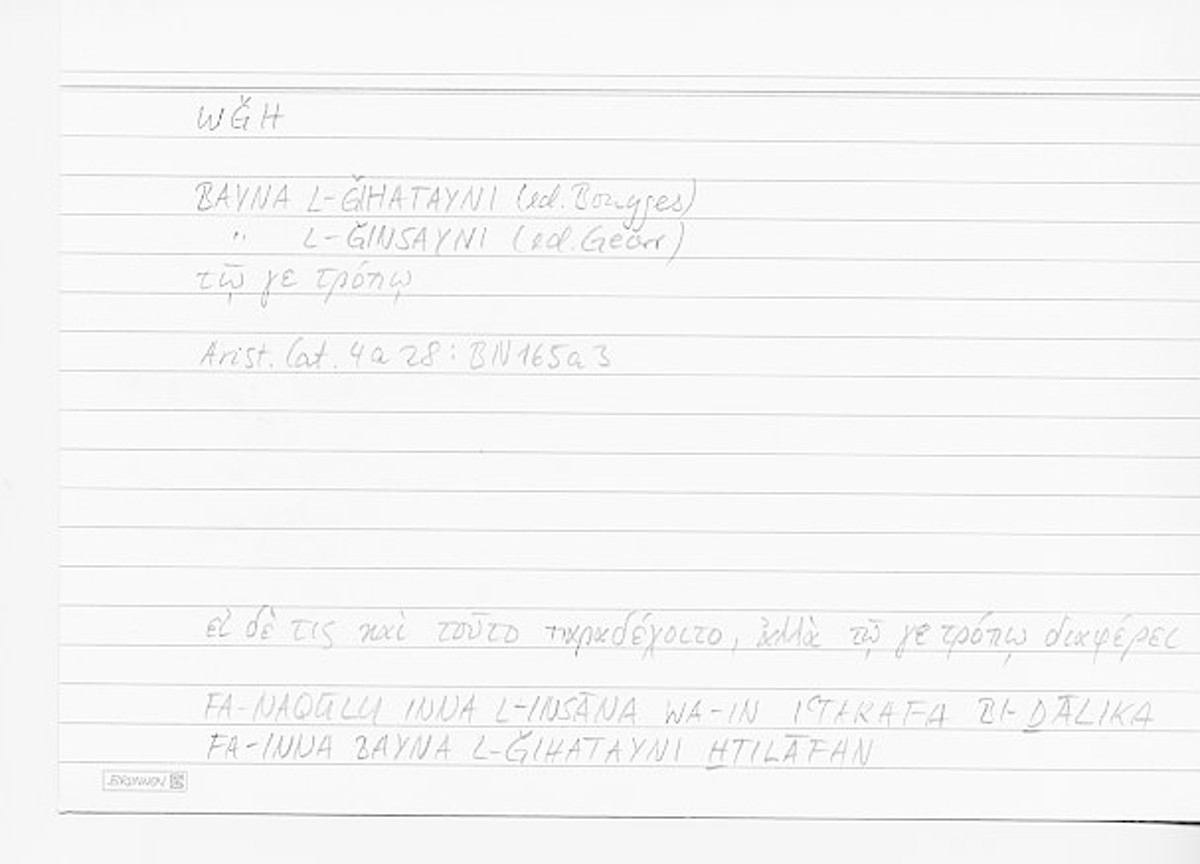 WǦH
BAYNA L-ǦIHATAYNI (ed. Bouyges)
" L-ǦINSAYNI (ed. Georr)
τῷ γε τρόπῳ
Arist. Cat. 4a28 : BN165a3
εἰ δέ τις καὶ τοῦτο παραδέχοιτο, ἀλλὰ τῷ γε τρόπῳ διαφέρει
FA-NAQŪLU INNA L-INSĀNA WA-IN IʿTARAFA BI-ḎĀLIKA
FA-INNA BAYNA L-ǦIHATAYNI ḪTILĀFAN
BRUNNEN